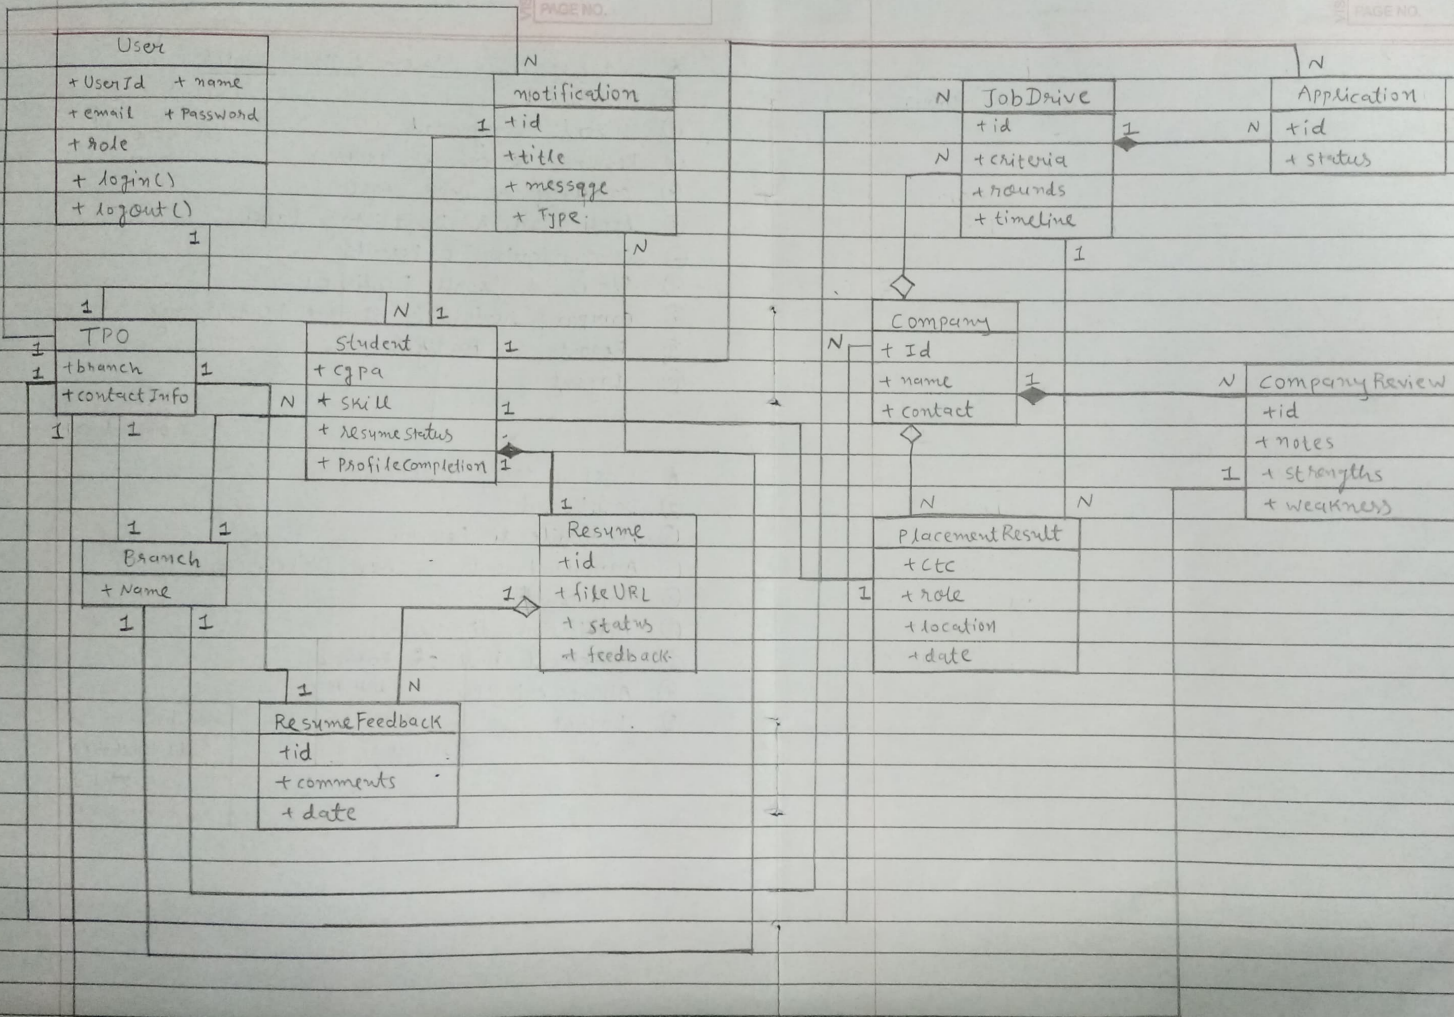 PAGE NO.
PAGE NO.
User
+ UserId + name
+ email + Password
+ role
+ login()
+ logout()
1
N
Notification
+id
+title
+ message
+ Type
1
N
N
JobDrive
+id
+criteria
+rounds
+timeline
N
1
1
N
N
Application
+id
+ status
1
TPO
+branch
+contactInfo
1
1
1
1
1
N
1
Student
+ cgpa
+ skill
+ resumestatus
+ ProfileCompletion
N
1
1
1
Company
+ Id
+ name
+ contact
N
1
N
CompanyReview
+id
+notes
+ strengths
+ weakness
1
1
1
Branch
+ Name
1
1
1
Resume
+id
+ fileURL
+ status
+ feedback
1
N
N
PlacementResult
+ctc
+ role
+location
+date
1
1
N
ResumeFeedback
+id
+ comments
+ date